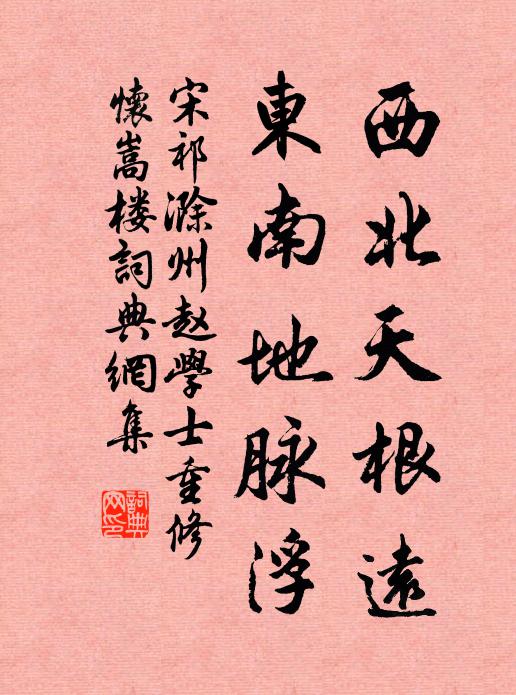 西北天根遠
東南地脉浮
宋祁滁州赵學士重修
懷嵩楼詞典網集
詞典
网印